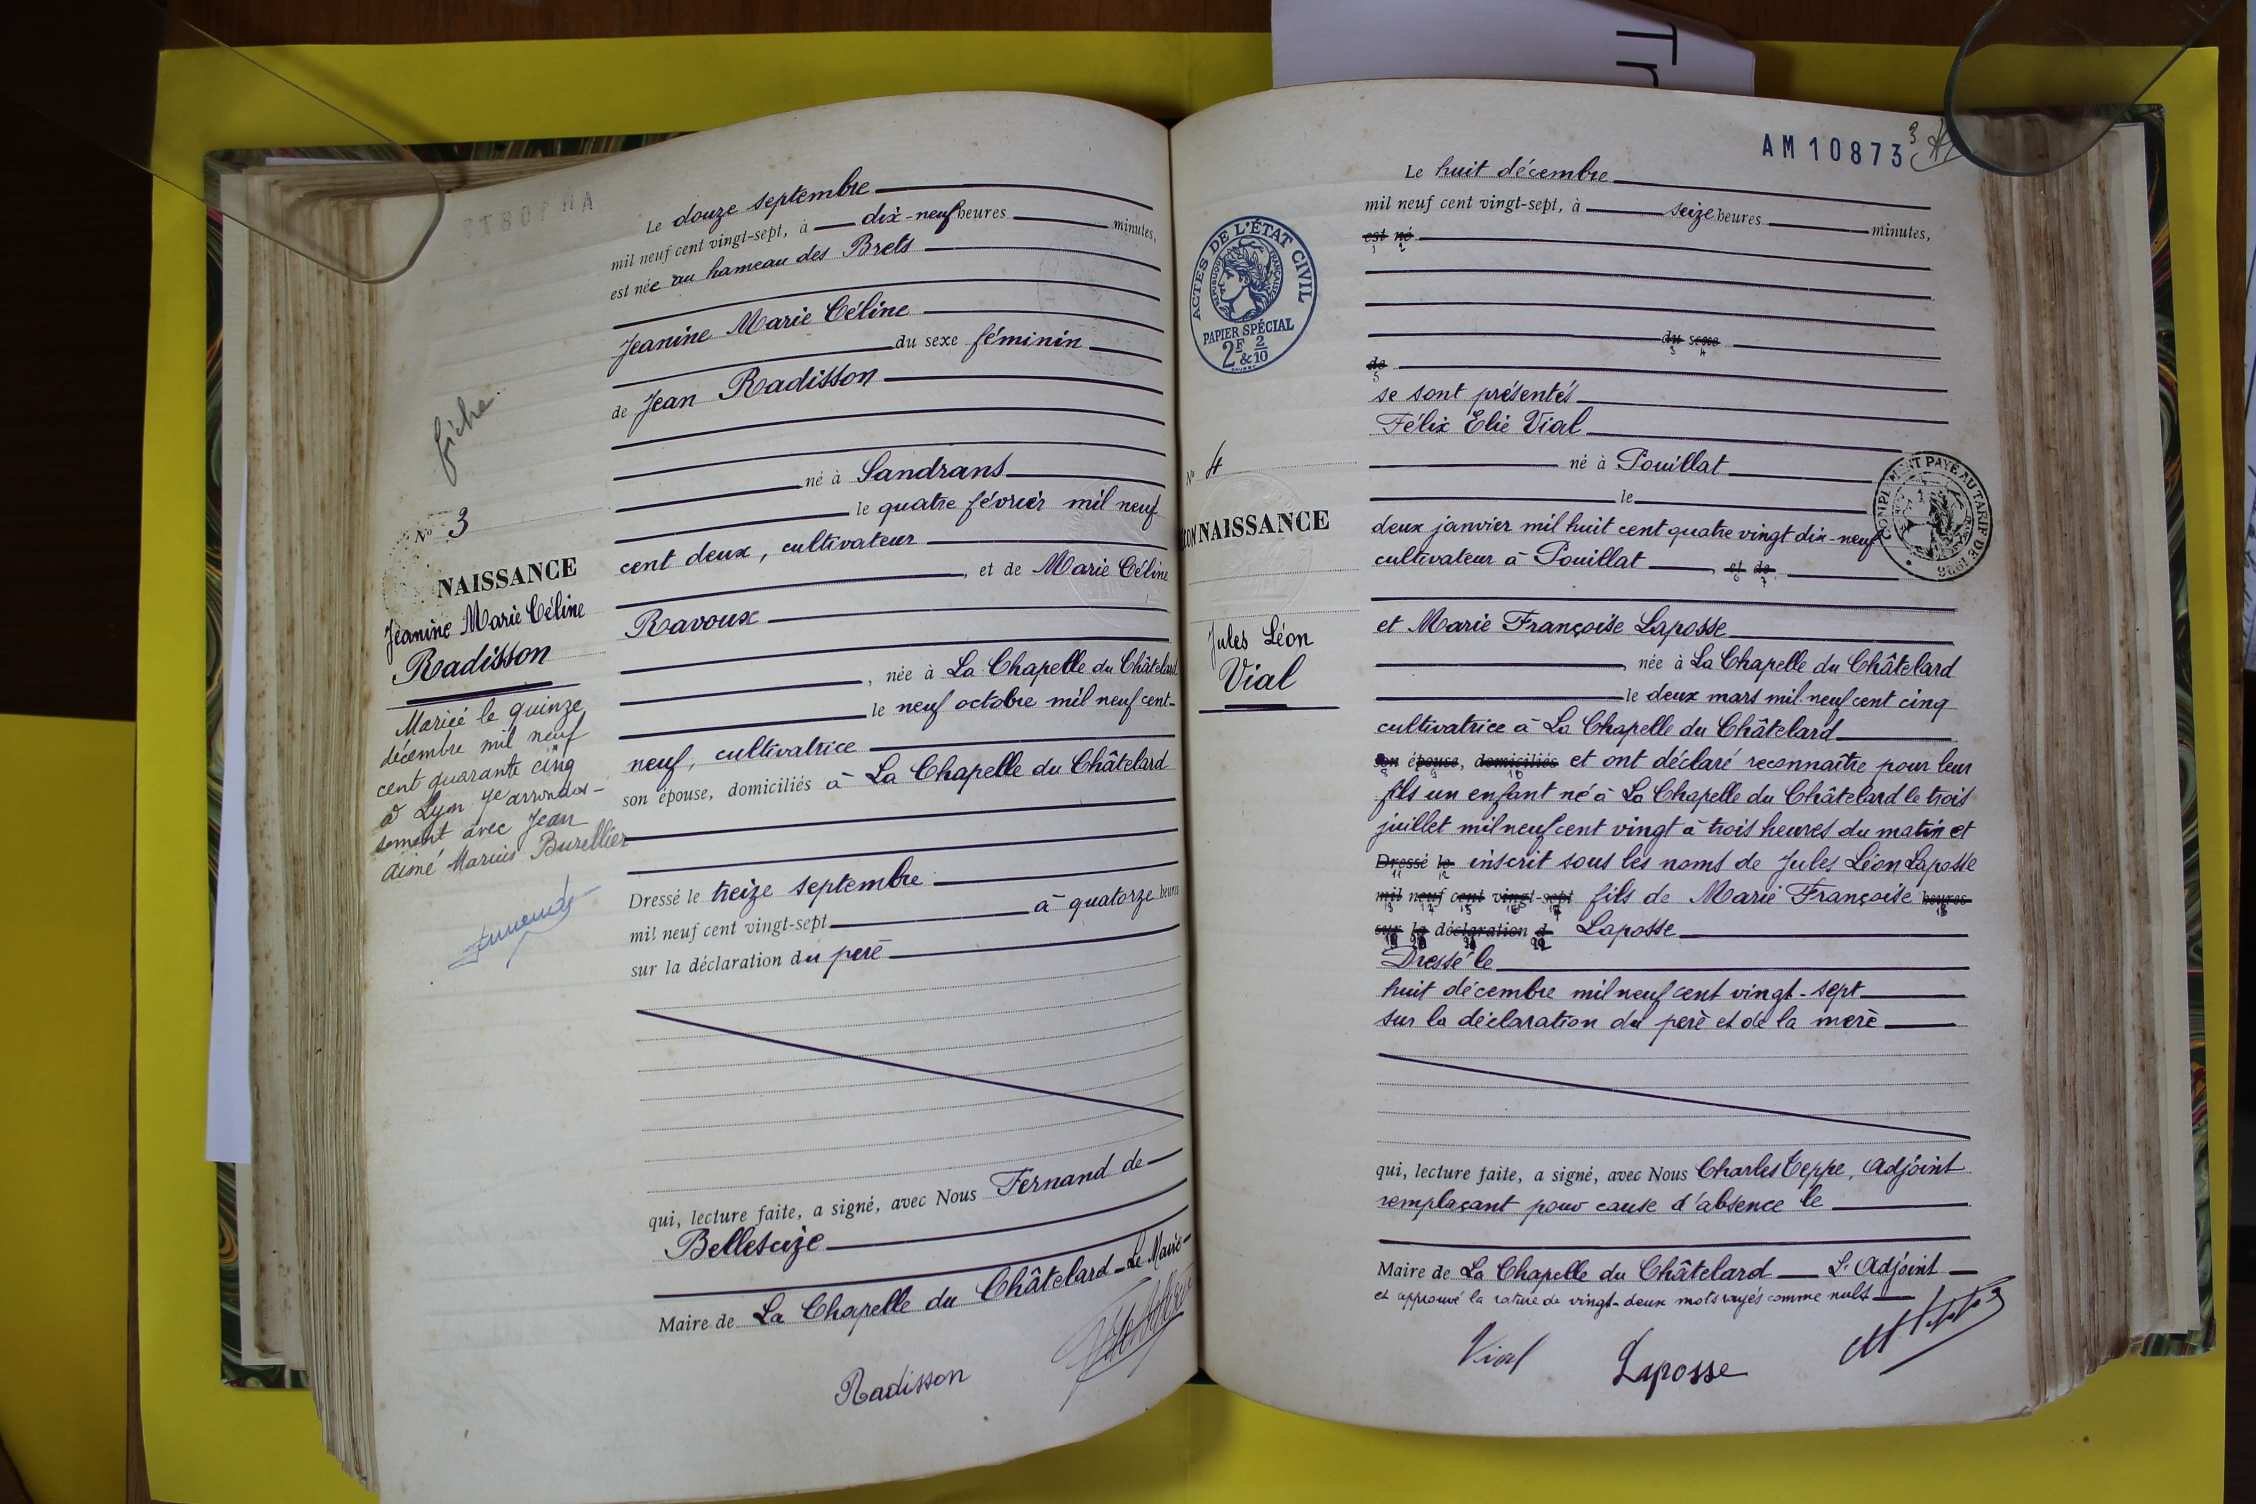 Tr
fiche
Nº 3
NAISSANCE
Jeanine Marie Céline
Radisson
Mariée le quinze
décembre mil neuf
cent quarante cinq
à Lyon 7e arrondis-
sement avec Jean
Aimé Marius Burellier
Le douze septembre
mil neuf cent vingt-sept, à dix-neuf heures minutes,
est née au hameau des Brets
Jeanine Marie Céline
du sexe féminin
de Jean Radisson
né à Sandrans
le quatre février mil neuf
cent deux, cultivateur
, et de Marie Céline
Ravoux
, née à La Chapelle du Châtelard
le neuf octobre mil neuf cent-
neuf, cultivatrice
son épouse, domiciliés à La Chapelle du Châtelard
Dressé le treize septembre
mil neuf cent vingt-sept à quatorze heures
sur la déclaration du père
qui, lecture faite, a signé, avec Nous Fernand de
Bellescize
Maire de La Chapelle du Châtelard - Le Maire -
Radisson
AM 10873
3
ACTES DE L'ÉTAT CIVIL
RÉPUBLIQUE FRANÇAISE
PAPIER SPÉCIAL
2F & 2/10
Nº 4
CONNAISSANCE
Jules Léon
Vial
Le huit décembre
mil neuf cent vingt-sept, à seize heures minutes,
est né
1 2
du sexe
3 4
de
5
se sont présentés
Félix Elie Vial
né à Pouillat
le
deux janvier mil huit cent quatre vingt dix-neuf
COMPLÉMENT PAYÉ AU TARIF DE 1926
cultivateur à Pouillat , et de
6 7
et Marie Françoise Laposse
, née à La Chapelle du Châtelard
le deux mars mil neuf cent cinq
cultivatrice à La Chapelle du Châtelard
son épouse, domiciliés et ont déclaré reconnaître pour leur
8 9 10
fils un enfant né à La Chapelle du Châtelard le trois
juillet mil neuf cent vingt à trois heures du matin et
Dressé le inscrit sous les noms de Jules Léon Laposse
11 12
mil neuf cent vingt-sept fils de Marie Françoise heures
13 14 15 16 17 18
sur la déclaration d Laposse
19 20 21 22
Dressé le
huit décembre mil neuf cent vingt-sept
sur la déclaration du père et de la mère
qui, lecture faite, a signé, avec Nous Charles Teppe, Adjoint
remplaçant pour cause d'absence le
Maire de La Chapelle du Châtelard L'Adjoint
et approuvé la rature de vingt-deux mots rayés comme nuls
Vial Laposse